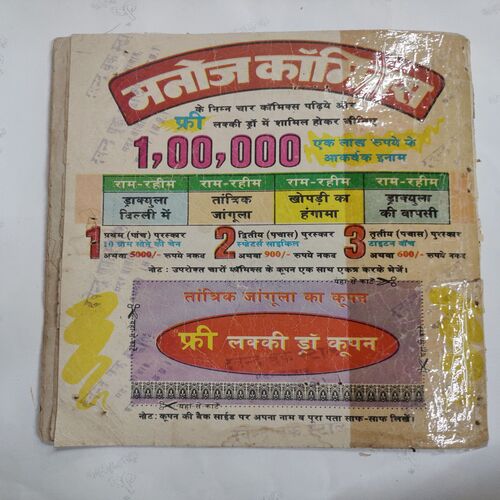 मनोज कॉमिक्स
के निम्न चार कॉमिक्स पढ़िये और
फ्री लक्की ड्रॉ में शामिल होकर जीतिए
1,00,000 एक लाख रुपये के
आकर्षक इनाम
राम-रहीम राम-रहीम राम-रहीम राम-रहीम
ड्राक्युला दिल्ली में तांत्रिक जांगूला खोपड़ी का हंगामा ड्राक्युला की वापसी
1 प्रथम (पांच) पुरस्कार
10 ग्राम सोने की चेन
अथवा 5000/- रुपये नकद
2 द्वितीय (पचास) पुरस्कार
स्पोर्ट्स साइकिल
अथवा 900/- रुपये नकद
3 तृतीय (पचास) पुरस्कार
टाइटन वॉच
अथवा 600/- रुपये नकद
नोट: उपरोक्त चारों कॉमिक्स के कूपन एक साथ एकत्र करके भेजें।
यहां से काटें
तांत्रिक जांगूला का कूपन
फ्री लक्की ड्रॉ कूपन
यहां से काटें
यहां से काटें
यहां से काटें
नोट: कूपन की बैक साईड पर अपना नाम व पूरा पता साफ-साफ लिखें।